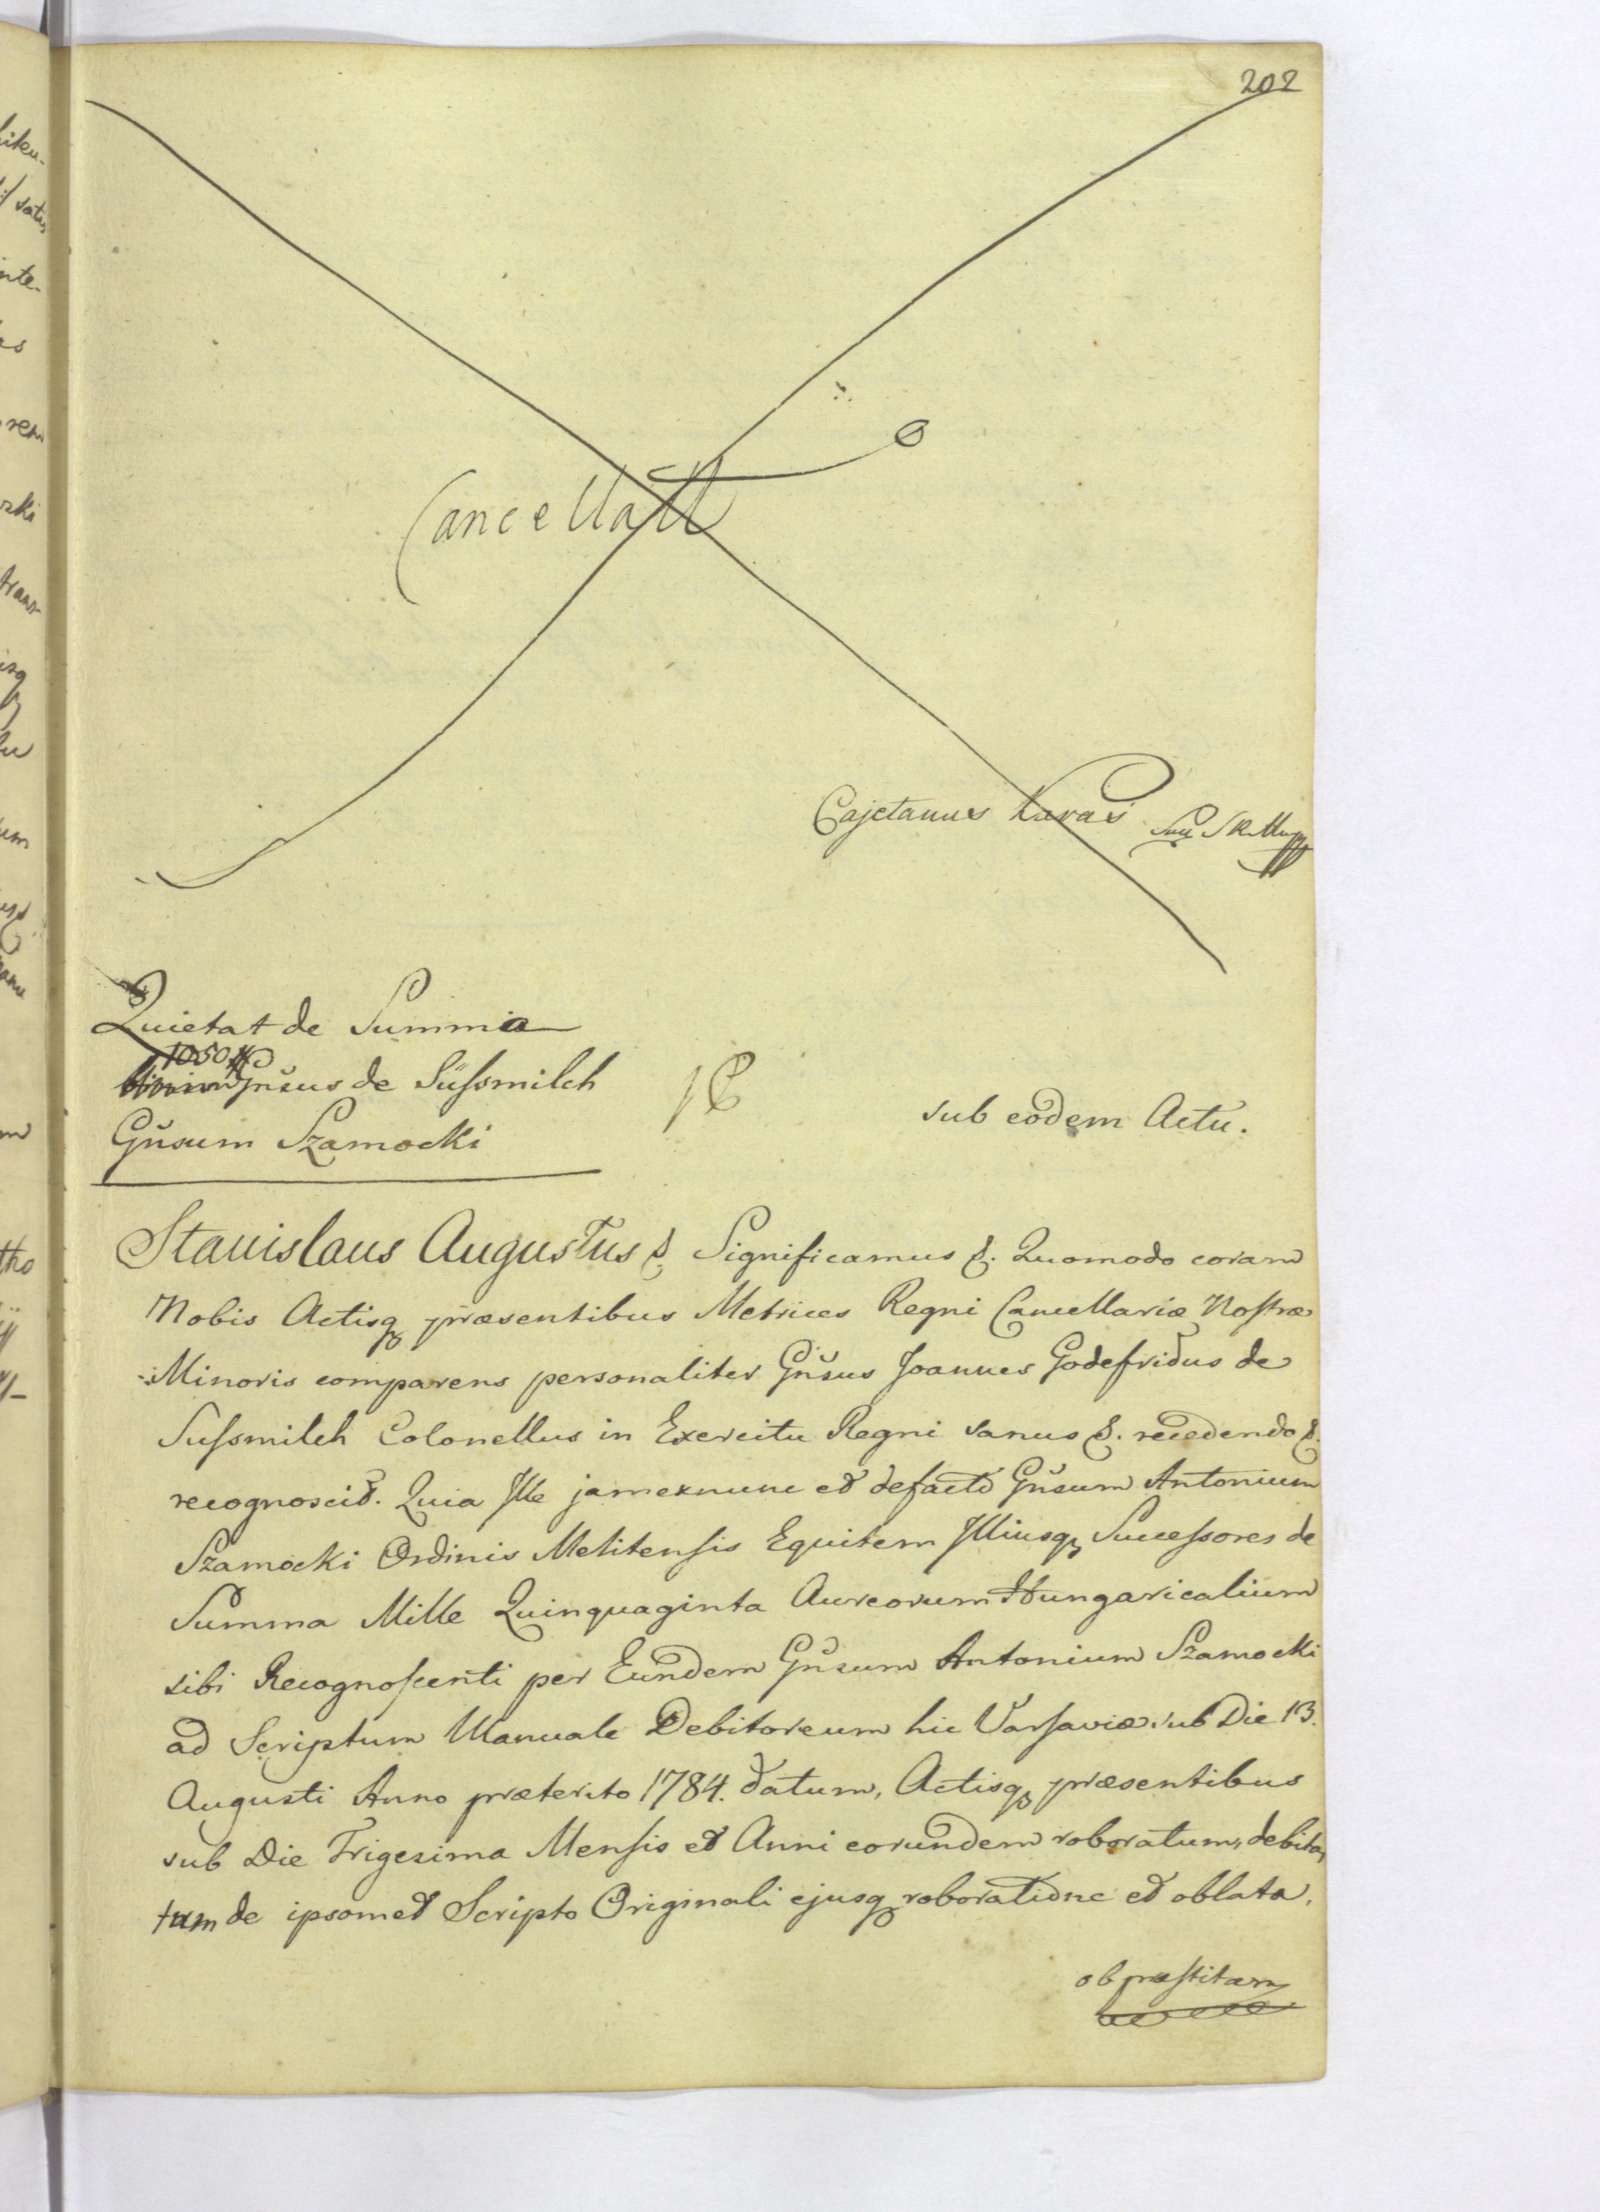 202
Cancellatt
Cajetanus Karas
Quietat de Summa
1050 #
Gnsus de Süssmilch
Gnsum Szamocki
sub eodem Actu.
Stanislaus Augustus &. Significamus &. Quomodo coram
Nobis Actisq praesentibus Metrices Regni Cancellariæ Nostræ
Minoris comparens personaliter Gnsus Joannes Godefridus de
Sussmilch Colonellus in Exercitu Regni sanus &. recedendo &.
recognoscit. Quia Ille jamexnunc et defacto Gnsum Antonium
Szamocki Ordinis Melitensis Equitem Illiusq Successores de
Summa Mille Quinquaginta Aureorum Hungaricalium
sibi Recognoscenti per Eundem Gnsum Antonium Szamocki
ad Scriptum Manuale Debitoreum hic Varsaviæ sub Die 13.
Augusti Anno præterito 1784. datum, Actisq præsentibus
sub Die Trigesima Mensis et Anni eorundem roboratum, debita,
tum de ipsomet Scripto Originali ejusq roboratione et oblata,
ob præstitam